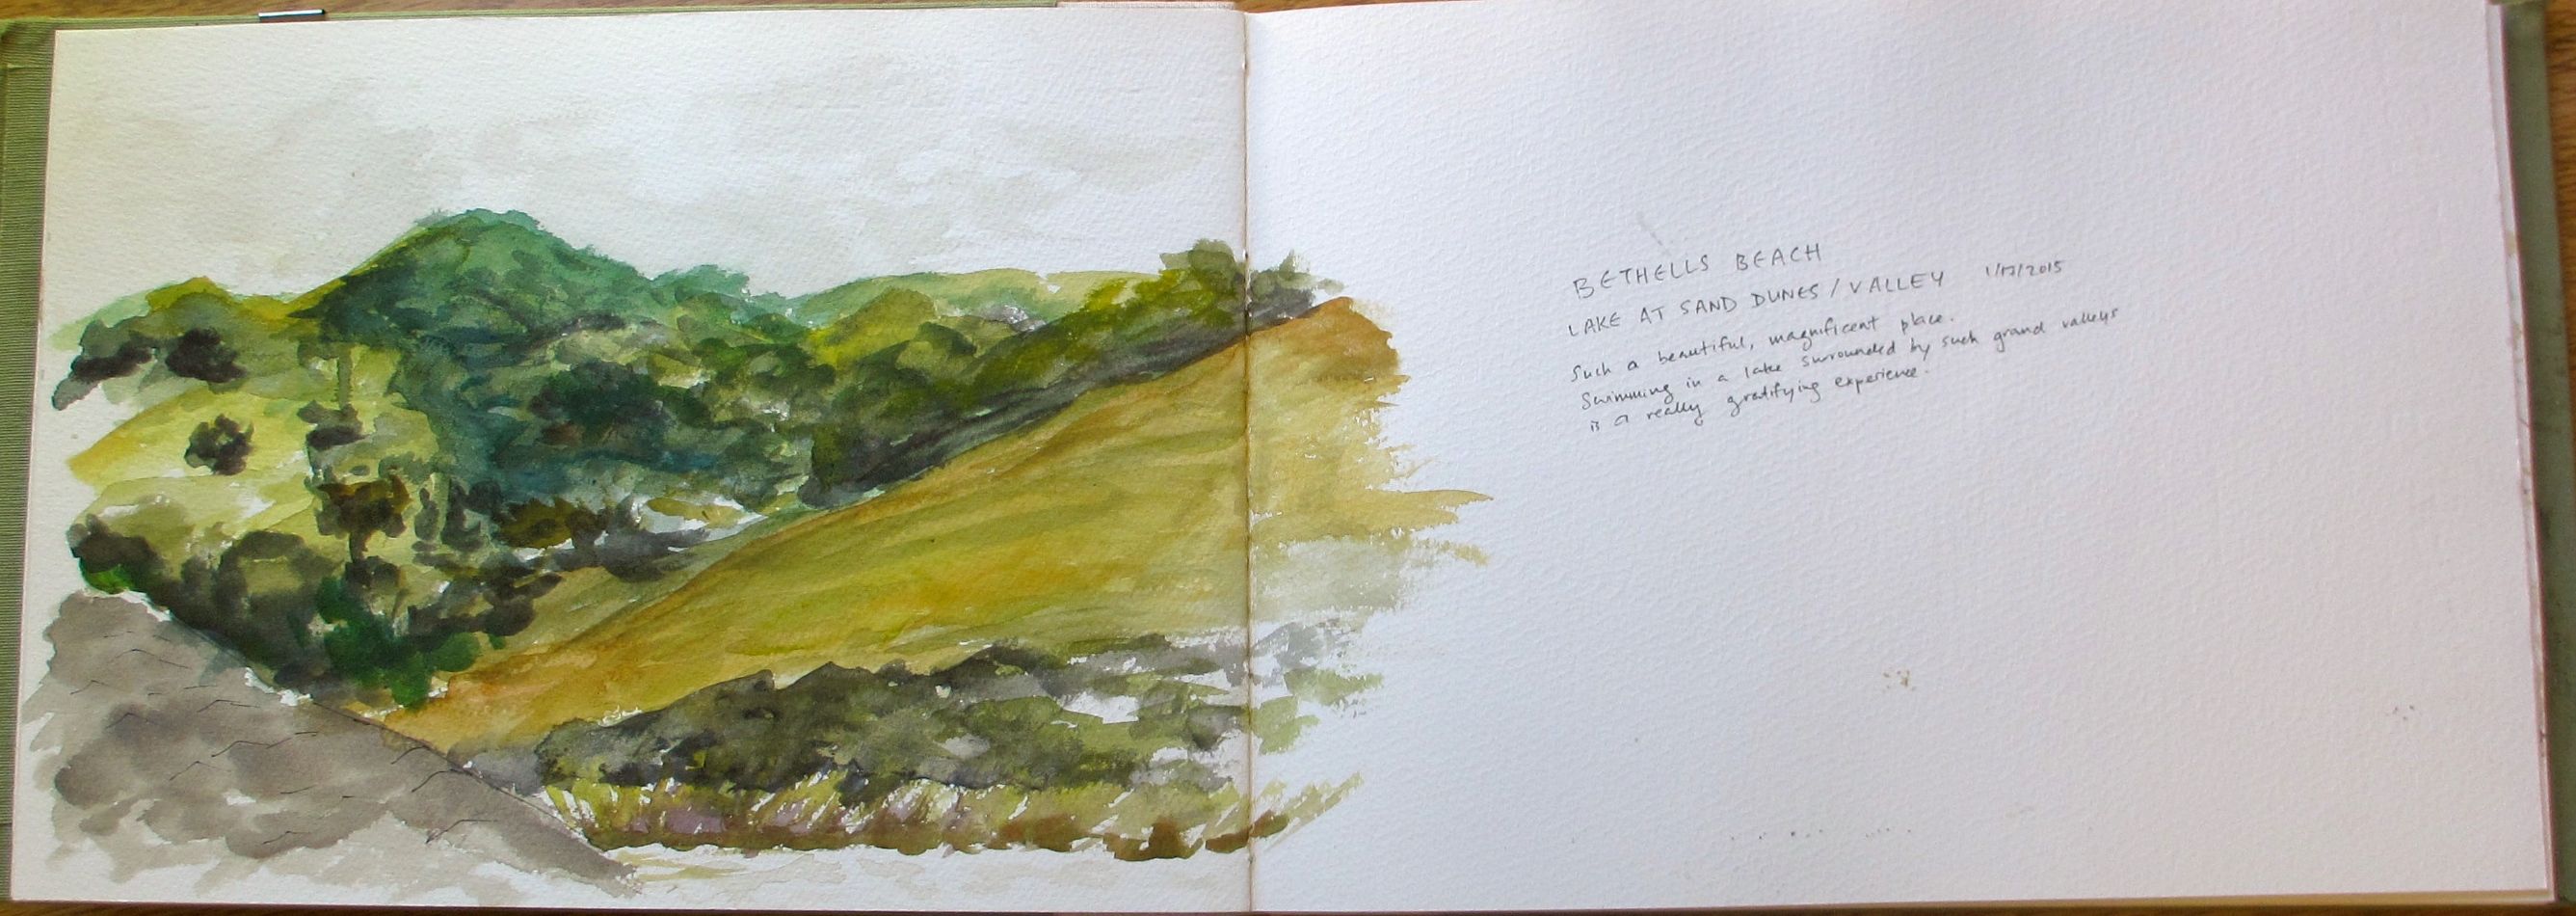 BETHELLS BEACH
LAKE AT SAND DUNES / VALLEY 1/17/2015
Such a beautiful, magnificent place.
Swimming in a lake surrounded by such grand valleys
is a really gratifying experience.